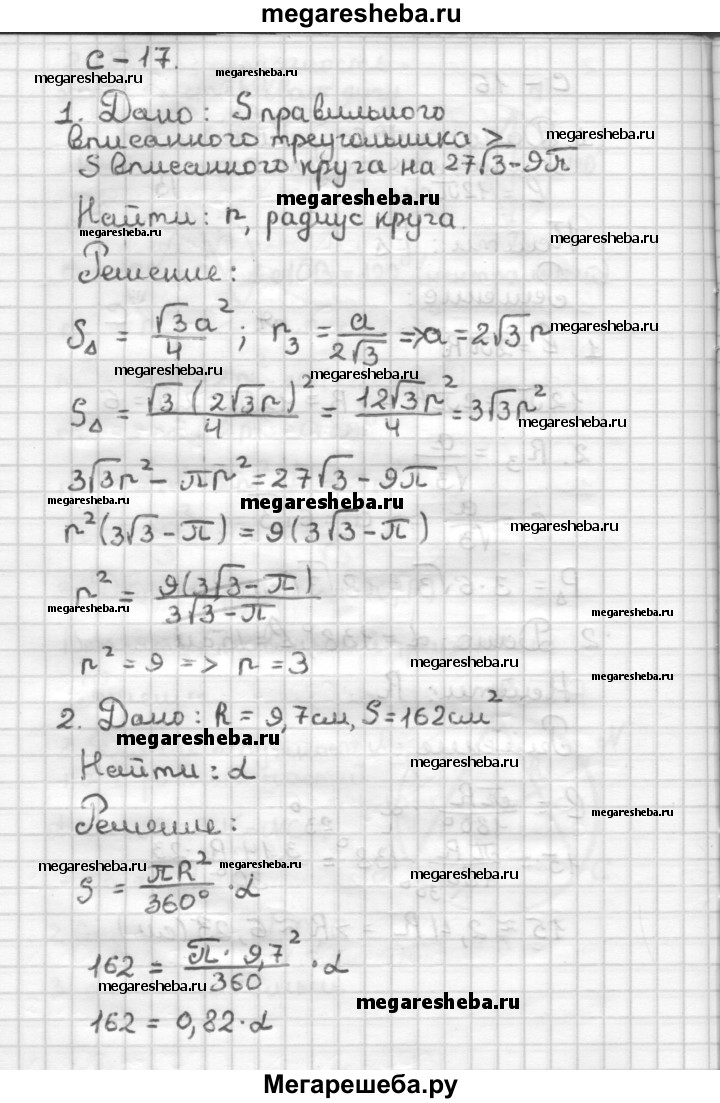 megaresheba.ru
С-17.
megaresheba.ru megaresheba.ru
1. Дано: S правильного
вписанного треугольника > megaresheba.ru
S вписанного круга на 27√3-9π
megaresheba.ru
Найти: r, радиус круга.
megaresheba.ru megaresheba.ru
Решение:
S△ = √3a²/4; r₃ = a/2√3 => a = 2√3r megaresheba.ru
megaresheba.ru megaresheba.ru
S△ = √3(2√3r)²/4 = 12√3r²/4 = 3√3r²
megaresheba.ru
3√3r² - πr² = 27√3 - 9π
megaresheba.ru megaresheba.ru
r²(3√3-π) = 9(3√3-π) megaresheba.ru
r² = 9(3√3-π)/3√3-π
megaresheba.ru megaresheba.ru
r² = 9 => r = 3 megaresheba.ru
megaresheba.ru
2. Дано: R = 9,7см, S=162см²
megaresheba.ru
Найти: α megaresheba.ru
megaresheba.ru
Решение:
megaresheba.ru megaresheba.ru
S = πR²/360° · α megaresheba.ru
162 = π·9,7²/360 · α
megaresheba.ru
megaresheba.ru
162 = 0,82·α
Мегарешеба.ру